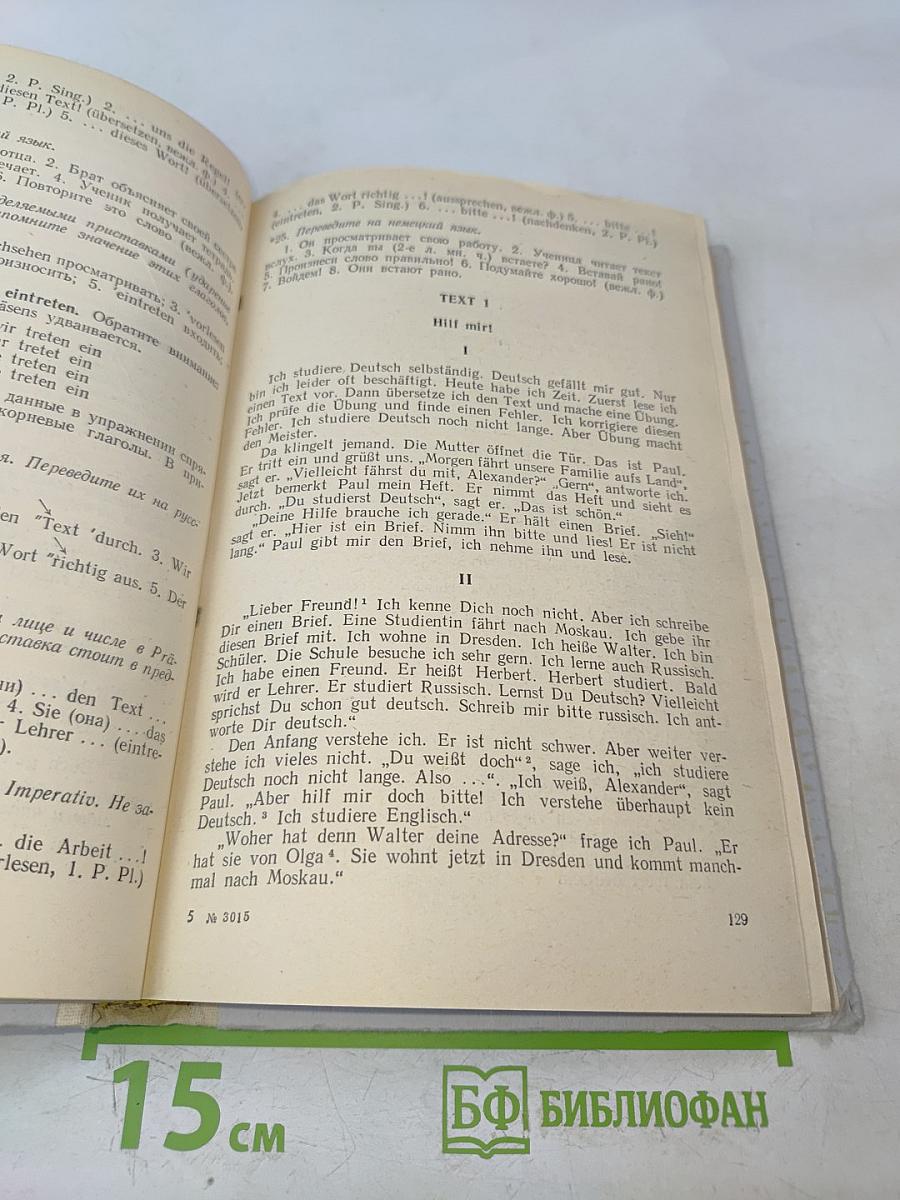 2. P. Sing.) 2. ... uns die Regel!
diesen Text! (übersetzen, вежл. ф.) 4.
P. Pl.) 5. ... dieses Wort! (übersetzen
й язык.
отца. 2. Брат объясняет своей сестре
ечает. 4. Ученик получает тетрадь.
6. Повторите это слово (вежл. ф.).
деляемыми приставками (ударение
помните значение этих глаголов.
chsehen просматривать; 3. 'vorlesen
оизносить; 5. 'eintreten входить;
eintreten. Обратите внимание:
äsens удваивается.
ir treten ein
r tretet ein
treten ein
treten ein
данные в упражнении спря-
корневые глаголы. В при-
я. Переведите их на русс.
en "Text 'durch. 3. Wir
Wort "richtig aus. 5. Der
лице и числе в Prä-
ставка стоит в пред-
ни) ... den Text ...
4. Sie (она) ... das
Lehrer ... (eintre-
).
Imperativ. Не за-
. die Arbeit ...!
rlesen, 1. P. Pl.)
4. ... das Wort richtig ...! (aussprechen, вежл. ф.) 5. ... bitte ...!
(eintreten, 2. P. Sing.) 6. ... bitte ...! (nachdenken, 2. P. Pl.)
*25. Переведите на немецкий язык.
1. Он просматривает свою работу. 2. Ученица читает текст
вслух. 3. Когда ты (2-е л. мн. ч.) встаете? 4. Вставай рано!
5. Произнеси слово правильно! 6. Подумайте хорошо! (вежл. ф.)
7. Войдем! 8. Они встают рано.
TEXT 1
Hilf mir!
I
Ich studiere Deutsch selbständig. Deutsch gefällt mir gut. Nur
bin ich leider oft beschäftigt. Heute habe ich Zeit. Zuerst lese ich
einen Text vor. Dann übersetze ich den Text und mache eine Übung.
Ich prüfe die Übung und finde einen Fehler. Ich korrigiere diesen
Fehler. Ich studiere Deutsch noch nicht lange. Aber Übung macht
den Meister.
Da klingelt jemand. Die Mutter öffnet die Tür. Das ist Paul.
Er tritt ein und grüßt uns. „Morgen fährt unsere Familie aufs Land“,
sagt er. „Vielleicht fährst du mit, Alexander?“ „Gern“, antworte ich.
Jetzt bemerkt Paul mein Heft. Er nimmt das Heft und sieht es
durch. „Du studierst Deutsch“, sagt er. „Das ist schön.“
„Deine Hilfe brauche ich gerade.“ Er hält einen Brief. „Sieh!“
sagt er. „Hier ist ein Brief. Nimm ihn bitte und lies! Er ist nicht
lang.“ Paul gibt mir den Brief, ich nehme ihn und lese.
II
„Lieber Freund!¹ Ich kenne Dich noch nicht. Aber ich schreibe
Dir einen Brief. Eine Studentin fährt nach Moskau. Ich gebe ihr
diesen Brief mit. Ich wohne in Dresden. Ich heiße Walter. Ich bin
Schüler. Die Schule besuche ich sehr gern. Ich lerne auch Russisch.
Ich habe einen Freund. Er heißt Herbert. Herbert studiert. Bald
wird er Lehrer. Er studiert Russisch. Lernst Du Deutsch? Vielleicht
sprichst Du schon gut deutsch. Schreib mir bitte russisch. Ich ant-
worte Dir deutsch.“
Den Anfang verstehe ich. Er ist nicht schwer. Aber weiter ver-
stehe ich vieles nicht. „Du weißt doch“², sage ich, „ich studiere
Deutsch noch nicht lange. Also ...“. „Ich weiß, Alexander“, sagt
Paul. „Aber hilf mir doch bitte! Ich verstehe überhaupt kein
Deutsch.³ Ich studiere Englisch.“
„Woher hat denn Walter deine Adresse?“ frage ich Paul. „Er
hat sie von Olga⁴. Sie wohnt jetzt in Dresden und kommt manch-
mal nach Moskau.“
5 № 3015
129
15 см
БФ БИБЛИОФАН